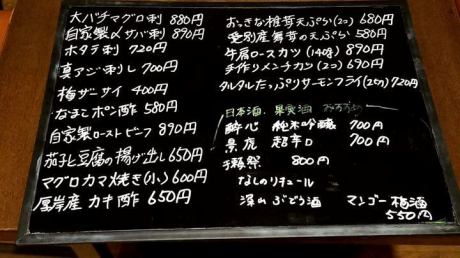 大バチマグロ刺 880円
自家製〆サバ刺 890円
ホタテ刺 720円
真アジ刺し 700円
梅ザーサイ 400円
なまこポン酢 580円
自家製ローストビーフ 890円
茄子と豆腐の揚げ出し 650円
マグロカマ焼き(小) 600円
厚岸産 カキ酢 650円
おっきな椎茸天ぷら(2コ) 680円
愛別産舞茸の天ぷら 580円
牛肩ロースカツ(140g) 890円
手作りメンチカツ(2コ) 690円
タルタルたっぷりサーモンフライ(2切) 720円
日本酒、果実酒 おすすめ
酔心 純米吟醸 700円
景虎 超辛口 700円
獺祭 800円
なしのリキュール
深山ぶどう酒 マンゴー梅酒
550円